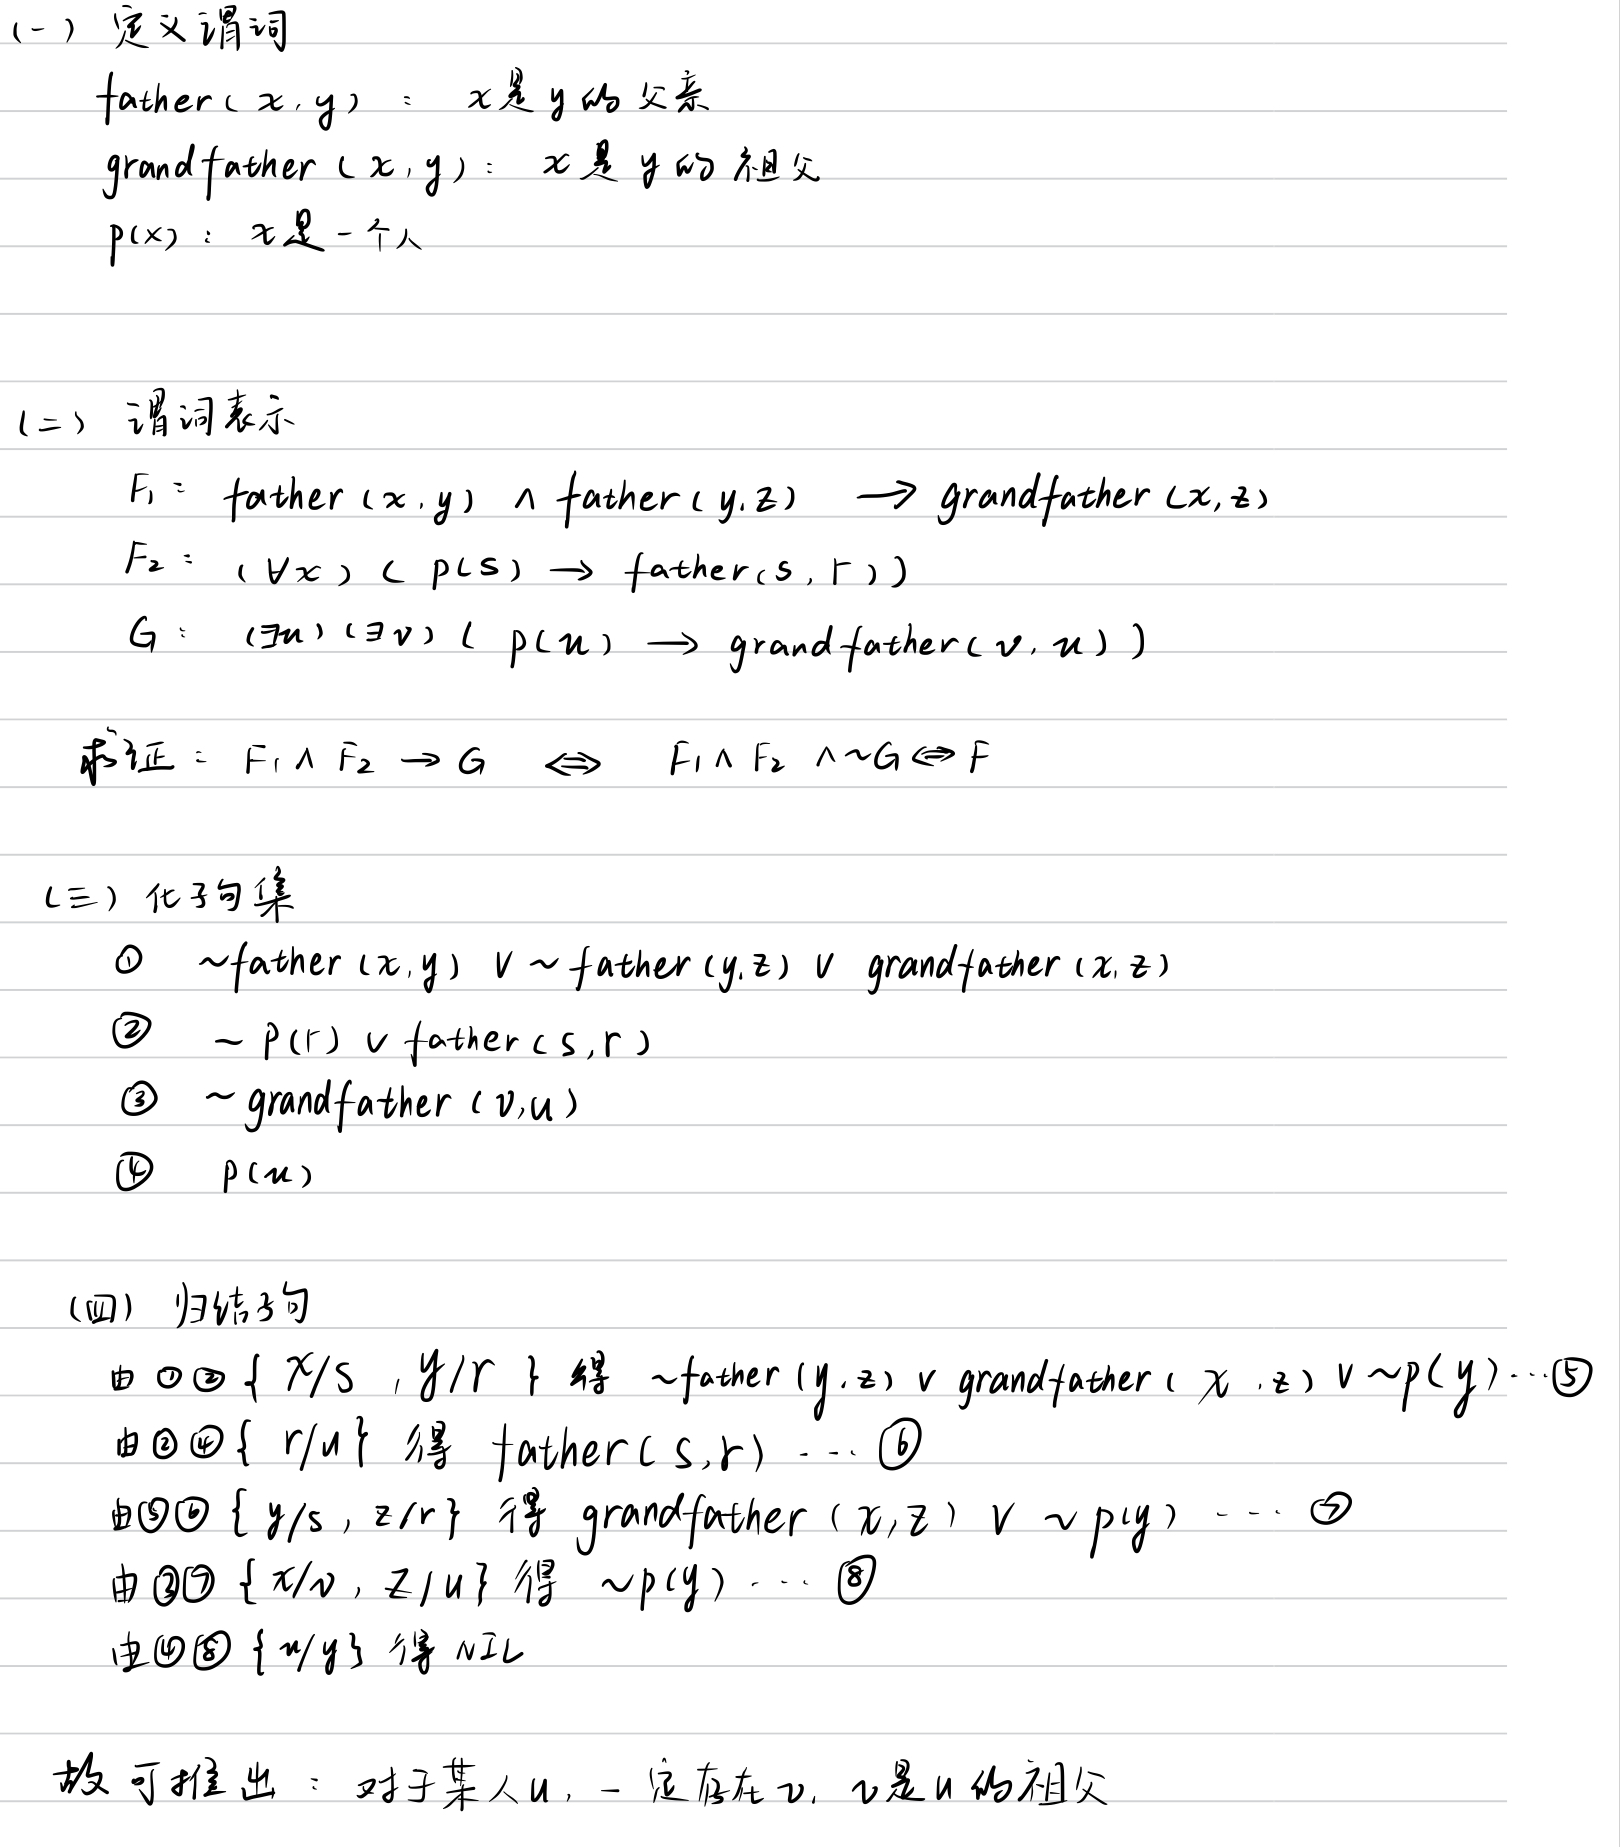 (一) 定义谓词
father(x,y) : x是y的父亲
grandfather(x,y): x是y的祖父
p(x): x是一个人
(二) 谓词表示
F₁: father(x,y) ∧ father(y,z) → grandfather(x,z)
F₂: (∀x)( p(s) → father(s,r))
G: (∃u)(∃v)( p(u) → grandfather(v,u))
求证: F₁∧F₂→G ⇔ F₁∧F₂∧~G⇔F
(三) 化子句集
① ~father(x,y) ∨ ~father(y,z) ∨ grandfather(x,z)
② ~P(r) ∨ father(s,r)
③ ~grandfather(v,u)
④ p(u)
(四) 归结子句
由①②{ x/s , y/r } 得 ~father(y,z) ∨ grandfather(x,z) ∨ ~p(y)…⑤
由②④{ r/u} 得 father(s,r) …⑥
由⑤⑥{ y/s, z/r} 得 grandfather(x,z) ∨ ~p(y) …⑦
由③⑦{x/v, z/u} 得 ~p(y) …⑧
由④⑧{u/y} 得 NIL
故可推出: 对于某人u, 一定存在v, v是u的祖父